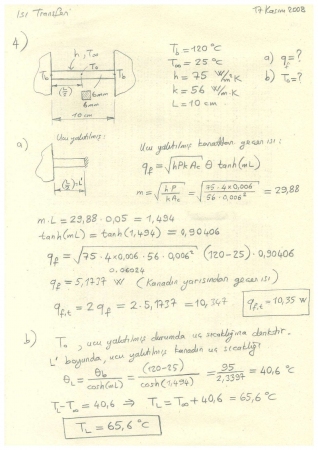 Isı Transferi 17 Kasım 2008
4)
h, T∞
Tb To Tb
(L/2)
6mm
6mm
10 cm
Tb = 120 °C
T∞ = 25 °C
h = 75 W/m²K
k = 56 W/m·K
L = 10 cm
a) q = ?
b) To = ?
a) Ucu yalıtılmış:
(L/2) = L'
Ucu yalıtılmış kanatdan geçen ısı:
qf = √hPkAc θ tanh(mL)
m = √hP/kAc = √75·4×0,006/56·0,006² = 29,88
m·L = 29,88·0,05 = 1,494
tanh(mL) = tanh(1,494) = 0,90406
qf = √75·4×0,006·56·0,006² (120-25)·0,90406
0.06024
qf = 5,1737 W (Kanadın yarısından geçen ısı)
qf,t = 2qf = 2·5,1737 = 10,347
qf,t = 10,35 W
b) To, ucu yalıtılmış durumda uç sıcaklığına denktir.
L' boyunda, ucu yalıtılmış kanadın uç sıcaklığı
θL = θb/cosh(mL) = (120-25)/cosh(1,494) = 95/2,3397 = 40,6 °C
TL-T∞ = 40,6 ⇒ TL = T∞ + 40,6 = 65,6 °C
TL = 65,6 °C